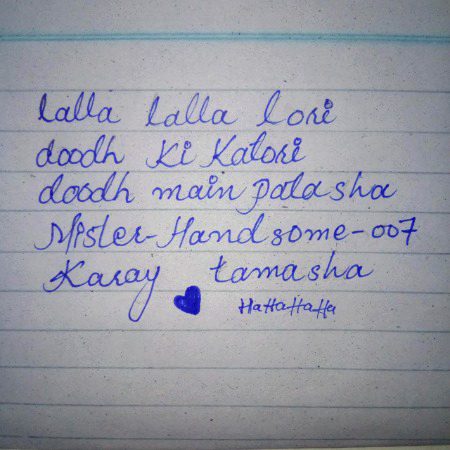 lalla lalla lori
doodh Ki Katori
doodh main patasha
Mister-Handsome-007
Karay tamasha
HaHHaHHa